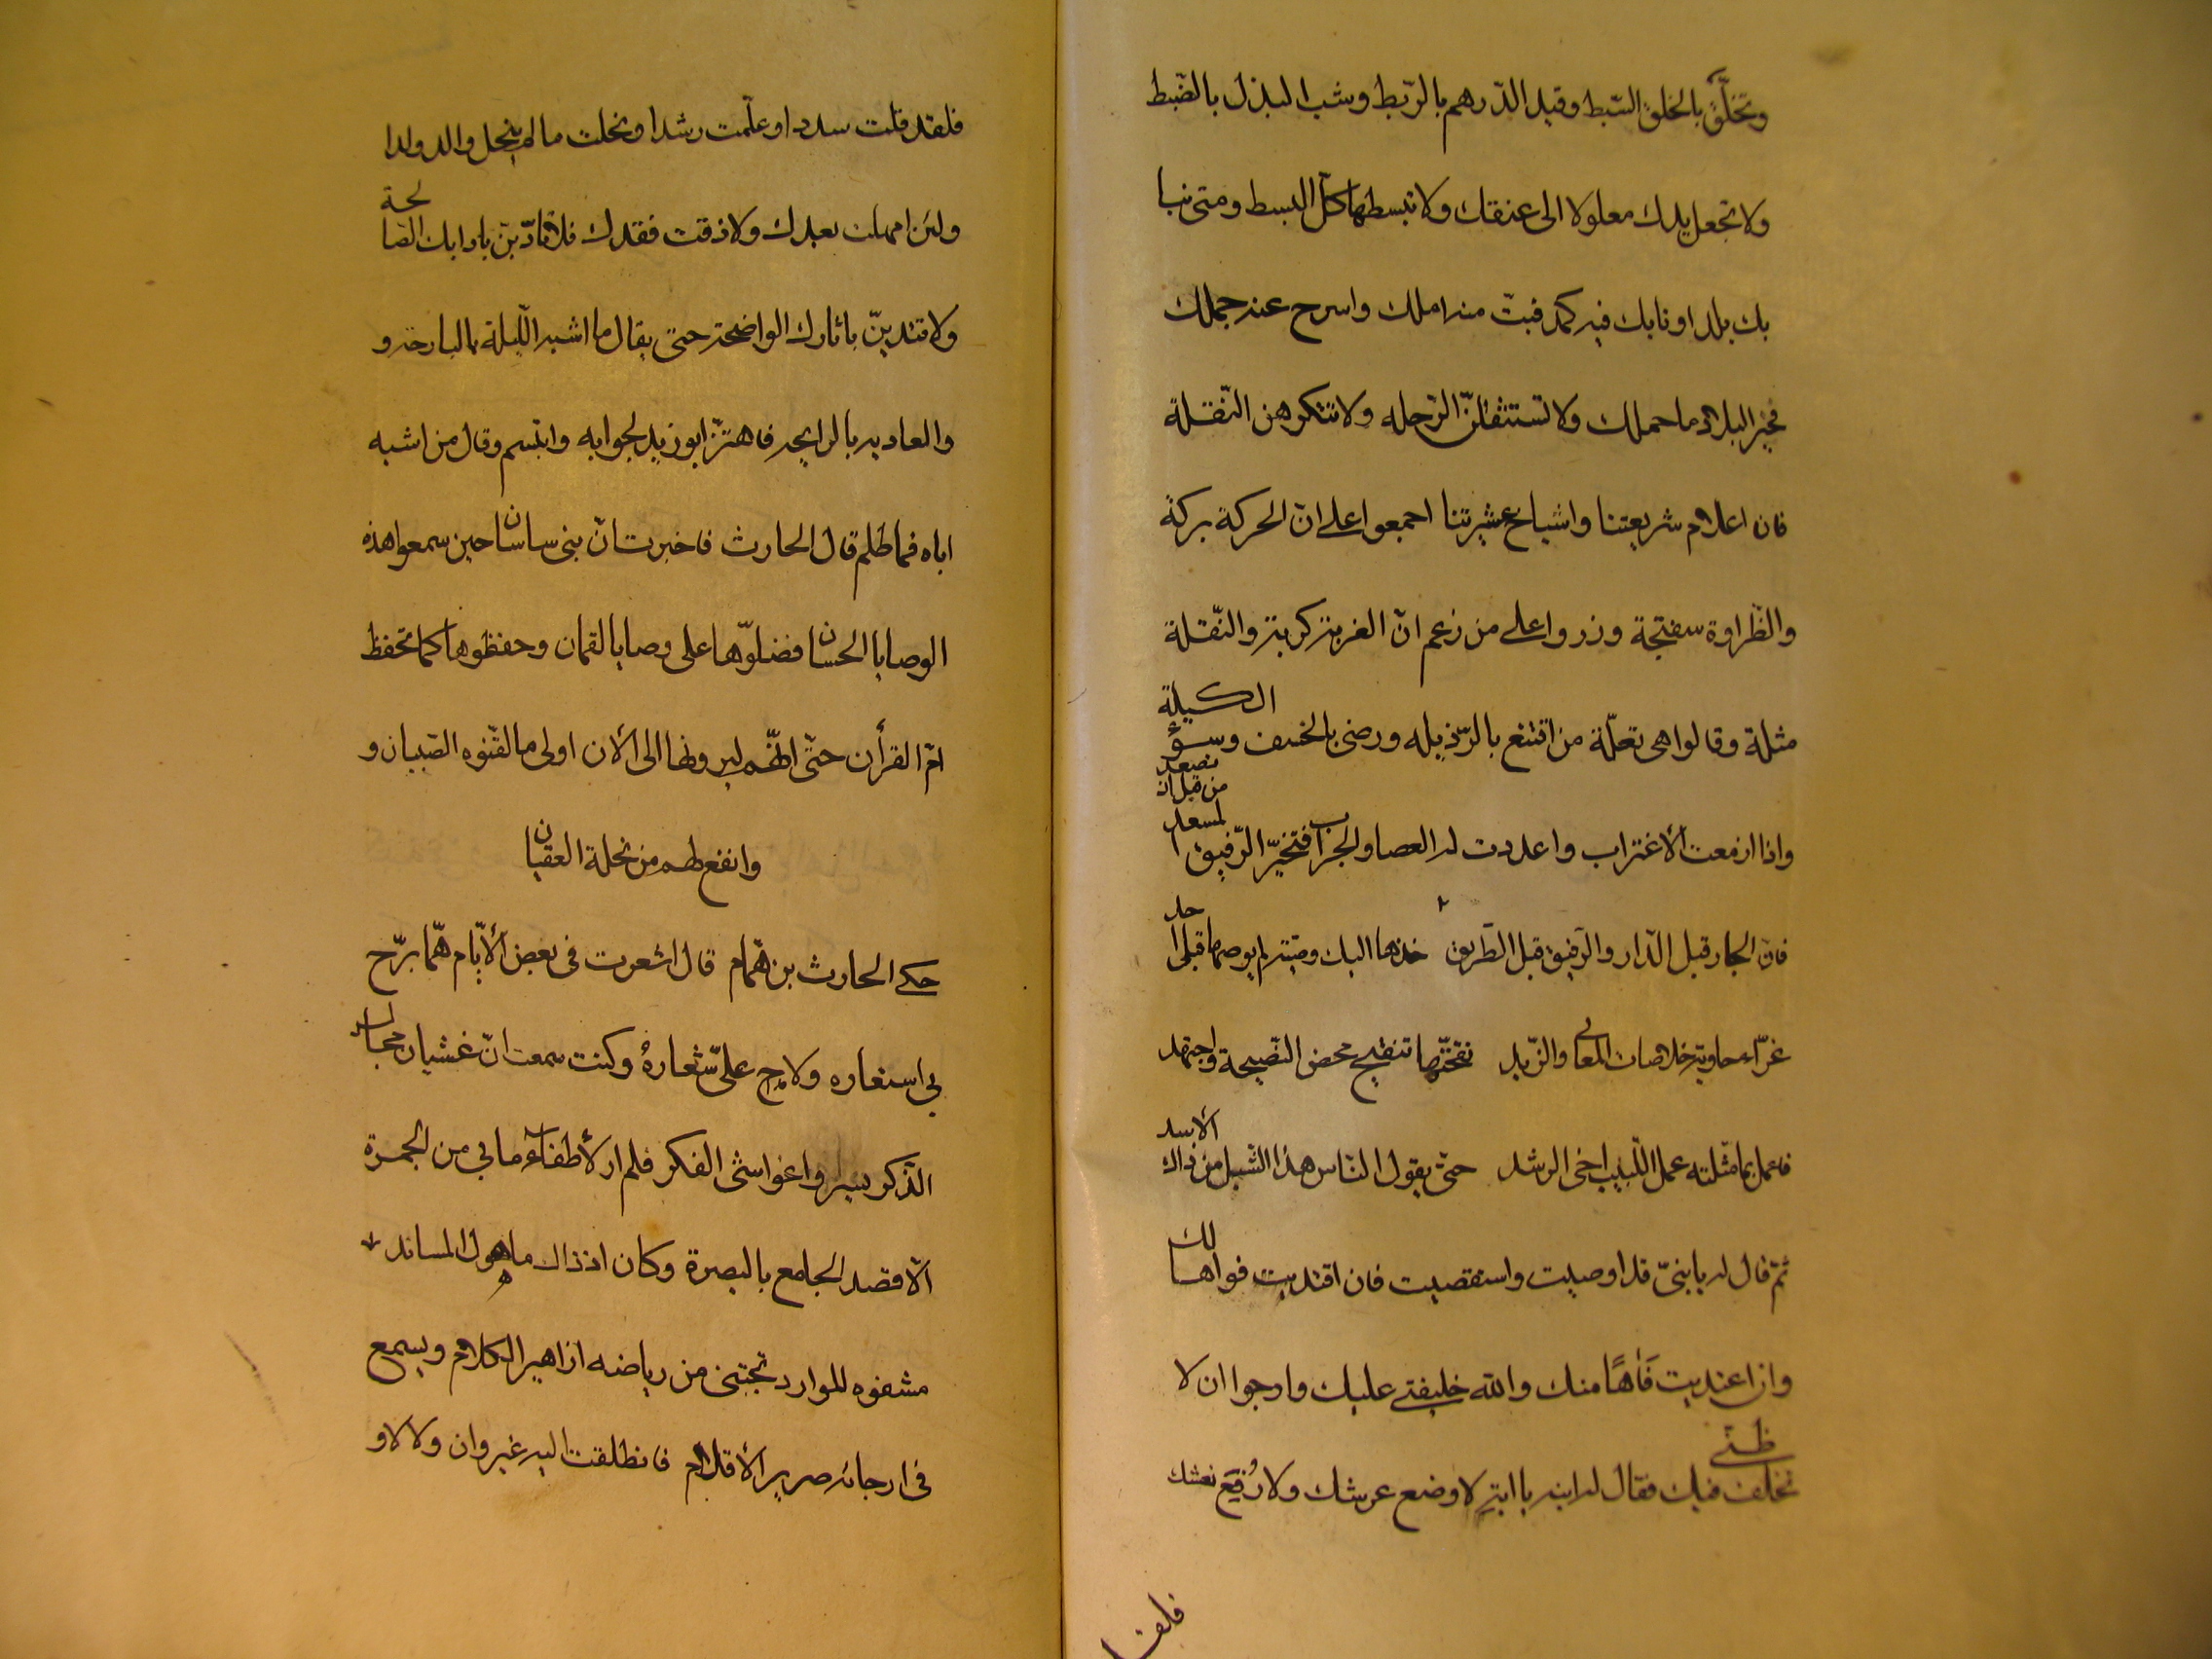 وتخلّق بالخلق السّبط وقيد الدّرهم بالرّبط وشب البذل بالضّبط
ولا تجعل يدك مغلولا الى عنقك ولا تبسطها كلّ البسط ومتى نبا
بك بلد او نابك فيه كمد فبتّ منه املك واسرح عنه جملك
فخير البلاد ما حملك ولا تستثقلنّ الرّحله ولا تتكرهن النّقلة
فان اعلام شريعتنا واشياخ عشيرتنا اجمعوا على انّ الحركة بركة
والطّراوة سفتجة وزروا على من زعم انّ الغربة كربة والنّقلة
مثلة وقالوا هى تعلّة من اقتنع بالرّذيله ورضى بالحشف وسوء الكيلة
واذا ازمعت الأغتراب واعددت له العصا والجراب فتخيّر الرّفيق المسعد من قبل ان تصعد
فان الجار قبل الدّار والرّفيق قبل الطّريق خذها اليك وصيّة لم يوصها قبلى احد
غرّاء حاوية خلاصات المعانى والزّبد نقحتها تنقيح محض النّصيحة واجتهد
فاعمل بما مثّلته عمل اللّبيب اخى الرشد حتّى يقول النّاس هذا الشّبل من ذاك الأسد
ثمّ قال له يا بنىّ قد اوصيت واستقصيت فان اقتديت فواها لك
وان اعتديت فَاٰهًا منك والله خليفتى عليك وارجوا ان لا
تخلف ظنّى فيك فقال له ابنه يا ابة لا وضع عرشك ولا رُفِعَ نعشك
فلقد
فلقد قلت سددا وعلّمت رشدا ونحلت ما لم ينحل والد ولدا
ولئن امهلت بعدك ولا ذقت فقدك فلاتادّبنّ باٰدابك الصّالحة
ولاقتدينّ باٰثارك الواضحة حتى يقال ما اشبه اللّيلة بالبارحة و
والغاديه بالرايحه فاهتزّ ابو زيد لجوابه وابتسم وقال من اشبه
اباه فما ظلم قال الحارث فاخبرت انّ بنى ساسان حين سمعوا هذه
الوصايا الحسان فضلوّها على وصايا لقمان وحفظوها كما تحفظ
امّ القرأن حتّى انّهم ليرونها الى الأن اولى ما لقّنوه الصّبيان و
وانفع لهم من نحلة العقيان
حكى الحارث بن همّام قال اشعرت فى بعض الأيّام همّا برّح
بى استعاره ولاح علىّ شعارهُ وكنت سمعت انّ غشيان مجالس
الذّكر يسروا غواشى الفكر فلم ار لأطفاء ما بى من الجمرة
الّا قصد الجامع بالبصرة وكان اذ ذاك ماهول المساند
مشفوه الموارد تجتنى من رياضه ازاهير الكلام ويسمع
فى ارجائه صرير الأقلام فانطلقت اليه غير وان ولا لاو